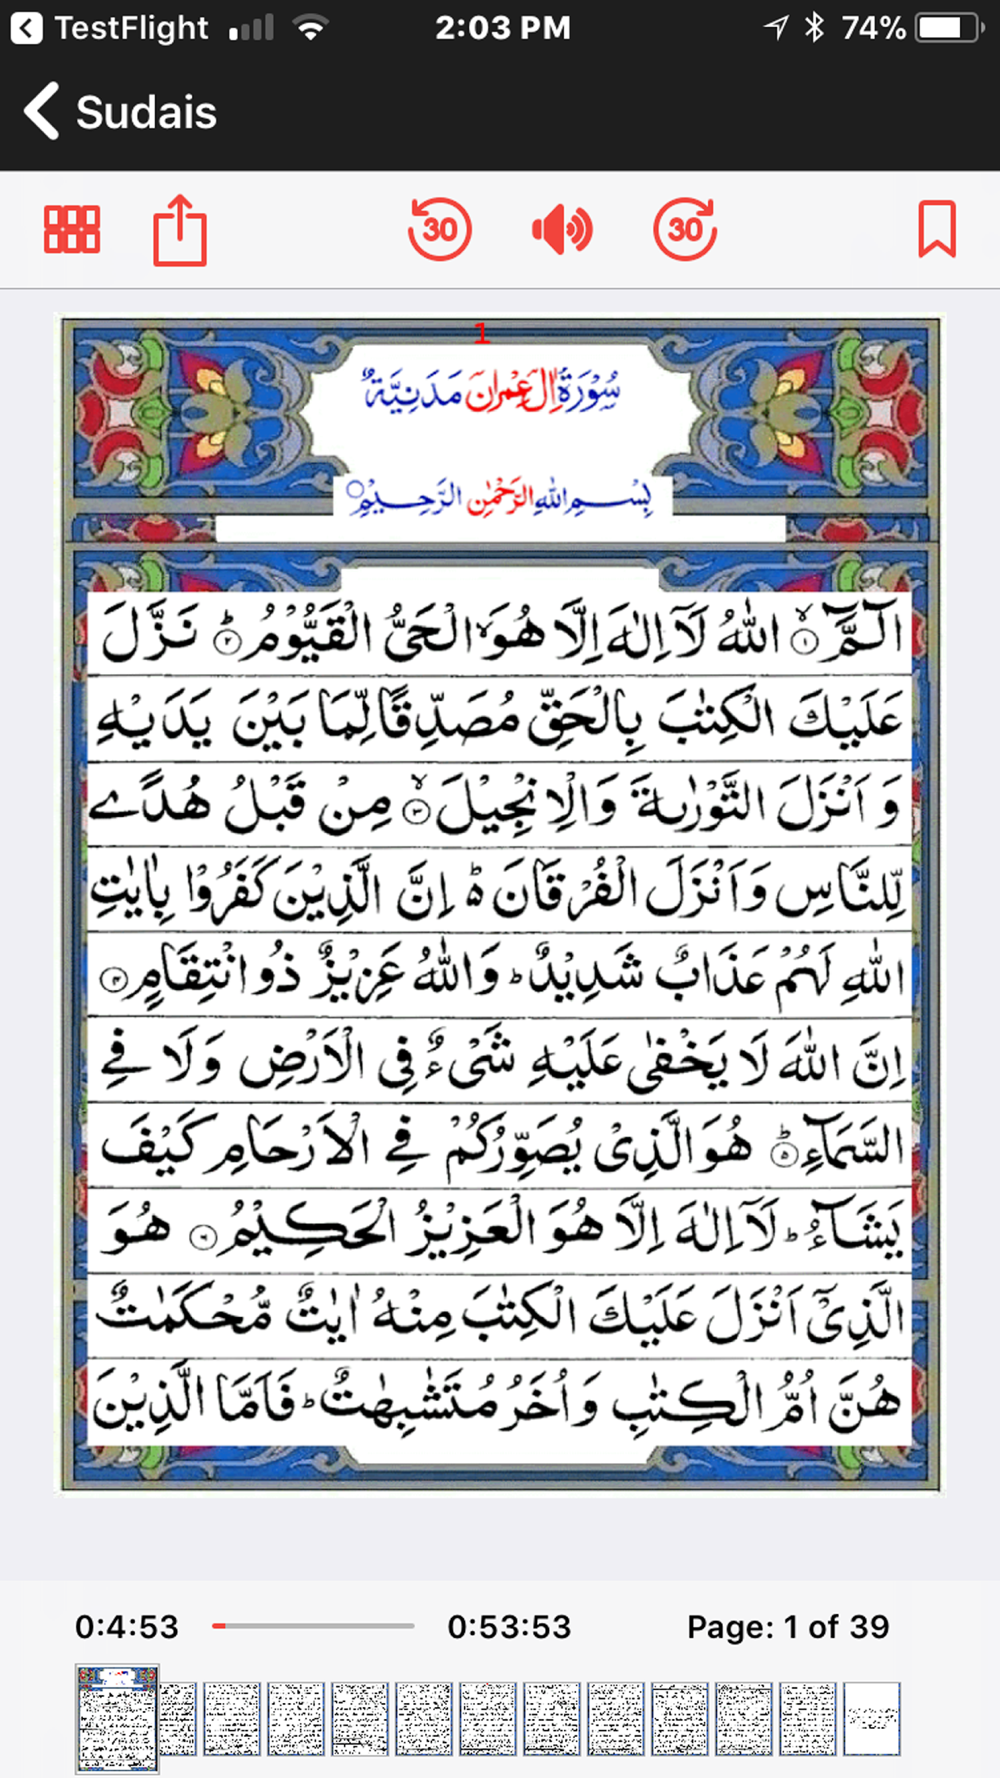 TestFlight 2:03 PM 74%
Sudais
30 30
1
سُوْرَةُ اٰلِ عِمْرٰنَ مَدَنِيَّةٌ
بِسْمِ اللّٰهِ الرَّحْمٰنِ الرَّحِيْمِ
الٓمَّٓ ۙ﴿۱﴾ اللّٰهُ لَاۤ اِلٰهَ اِلَّا هُوَ ۙ الْحَىُّ الْقَيُّوْمُ ؕ﴿۲﴾ نَزَّلَ
عَلَيْكَ الْكِتٰبَ بِالْحَقِّ مُصَدِّقًا لِّمَا بَيْنَ يَدَيْهِ
وَ اَنْزَلَ التَّوْرٰىةَ وَالْاِنْجِيْلَ ۙ﴿۳﴾ مِنْ قَبْلُ هُدًے
لِّلنَّاسِ وَاَنْزَلَ الْفُرْقَانَ ؕ اِنَّ الَّذِيْنَ كَفَرُوْا بِاٰيٰتِ
اللّٰهِ لَهُمْ عَذَابٌ شَدِيْدٌ ؕ وَاللّٰهُ عَزِيْزٌ ذُو انْتِقَامٍ ﴿۴﴾
اِنَّ اللّٰهَ لَا يَخْفٰى عَلَيْهِ شَىْءٌ فِى الْاَرْضِ وَلَا فِے
السَّمَآءِ ؕ﴿۵﴾ هُوَ الَّذِىْ يُصَوِّرُكُمْ فِے الْاَرْحَامِ كَيْفَ
يَشَآءُ ؕ لَاۤ اِلٰهَ اِلَّا هُوَ الْعَزِيْزُ الْحَكِيْمُ ﴿۶﴾ هُوَ
الَّذِىْۤ اَنْزَلَ عَلَيْكَ الْكِتٰبَ مِنْهُ اٰيٰتٌ مُّحْكَمٰتٌ
هُنَّ اُمُّ الْكِتٰبِ وَاُخَرُ مُتَشٰبِهٰتٌ ؕ فَاَمَّا الَّذِيْنَ
0:4:53 0:53:53 Page: 1 of 39